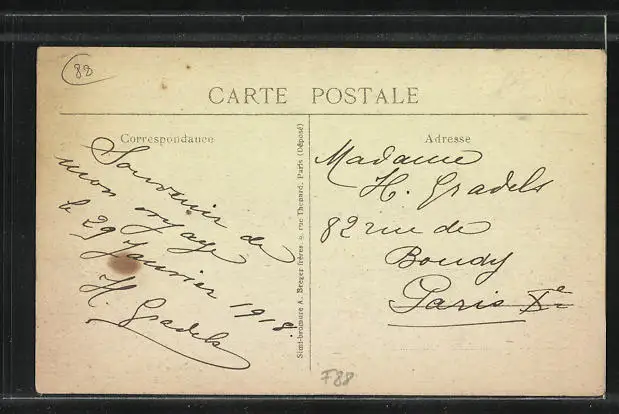 88
CARTE POSTALE
Correspondance
Souvenir de
mon voyage
le 29 Janvier 1918.
H. Gradels
Simi-bromure A. Breger frères, 9, rue Thenard, Paris (Déposé)
Adresse
Madame
H. Gradels
82 rue de
Bondy
Paris Xe
F88